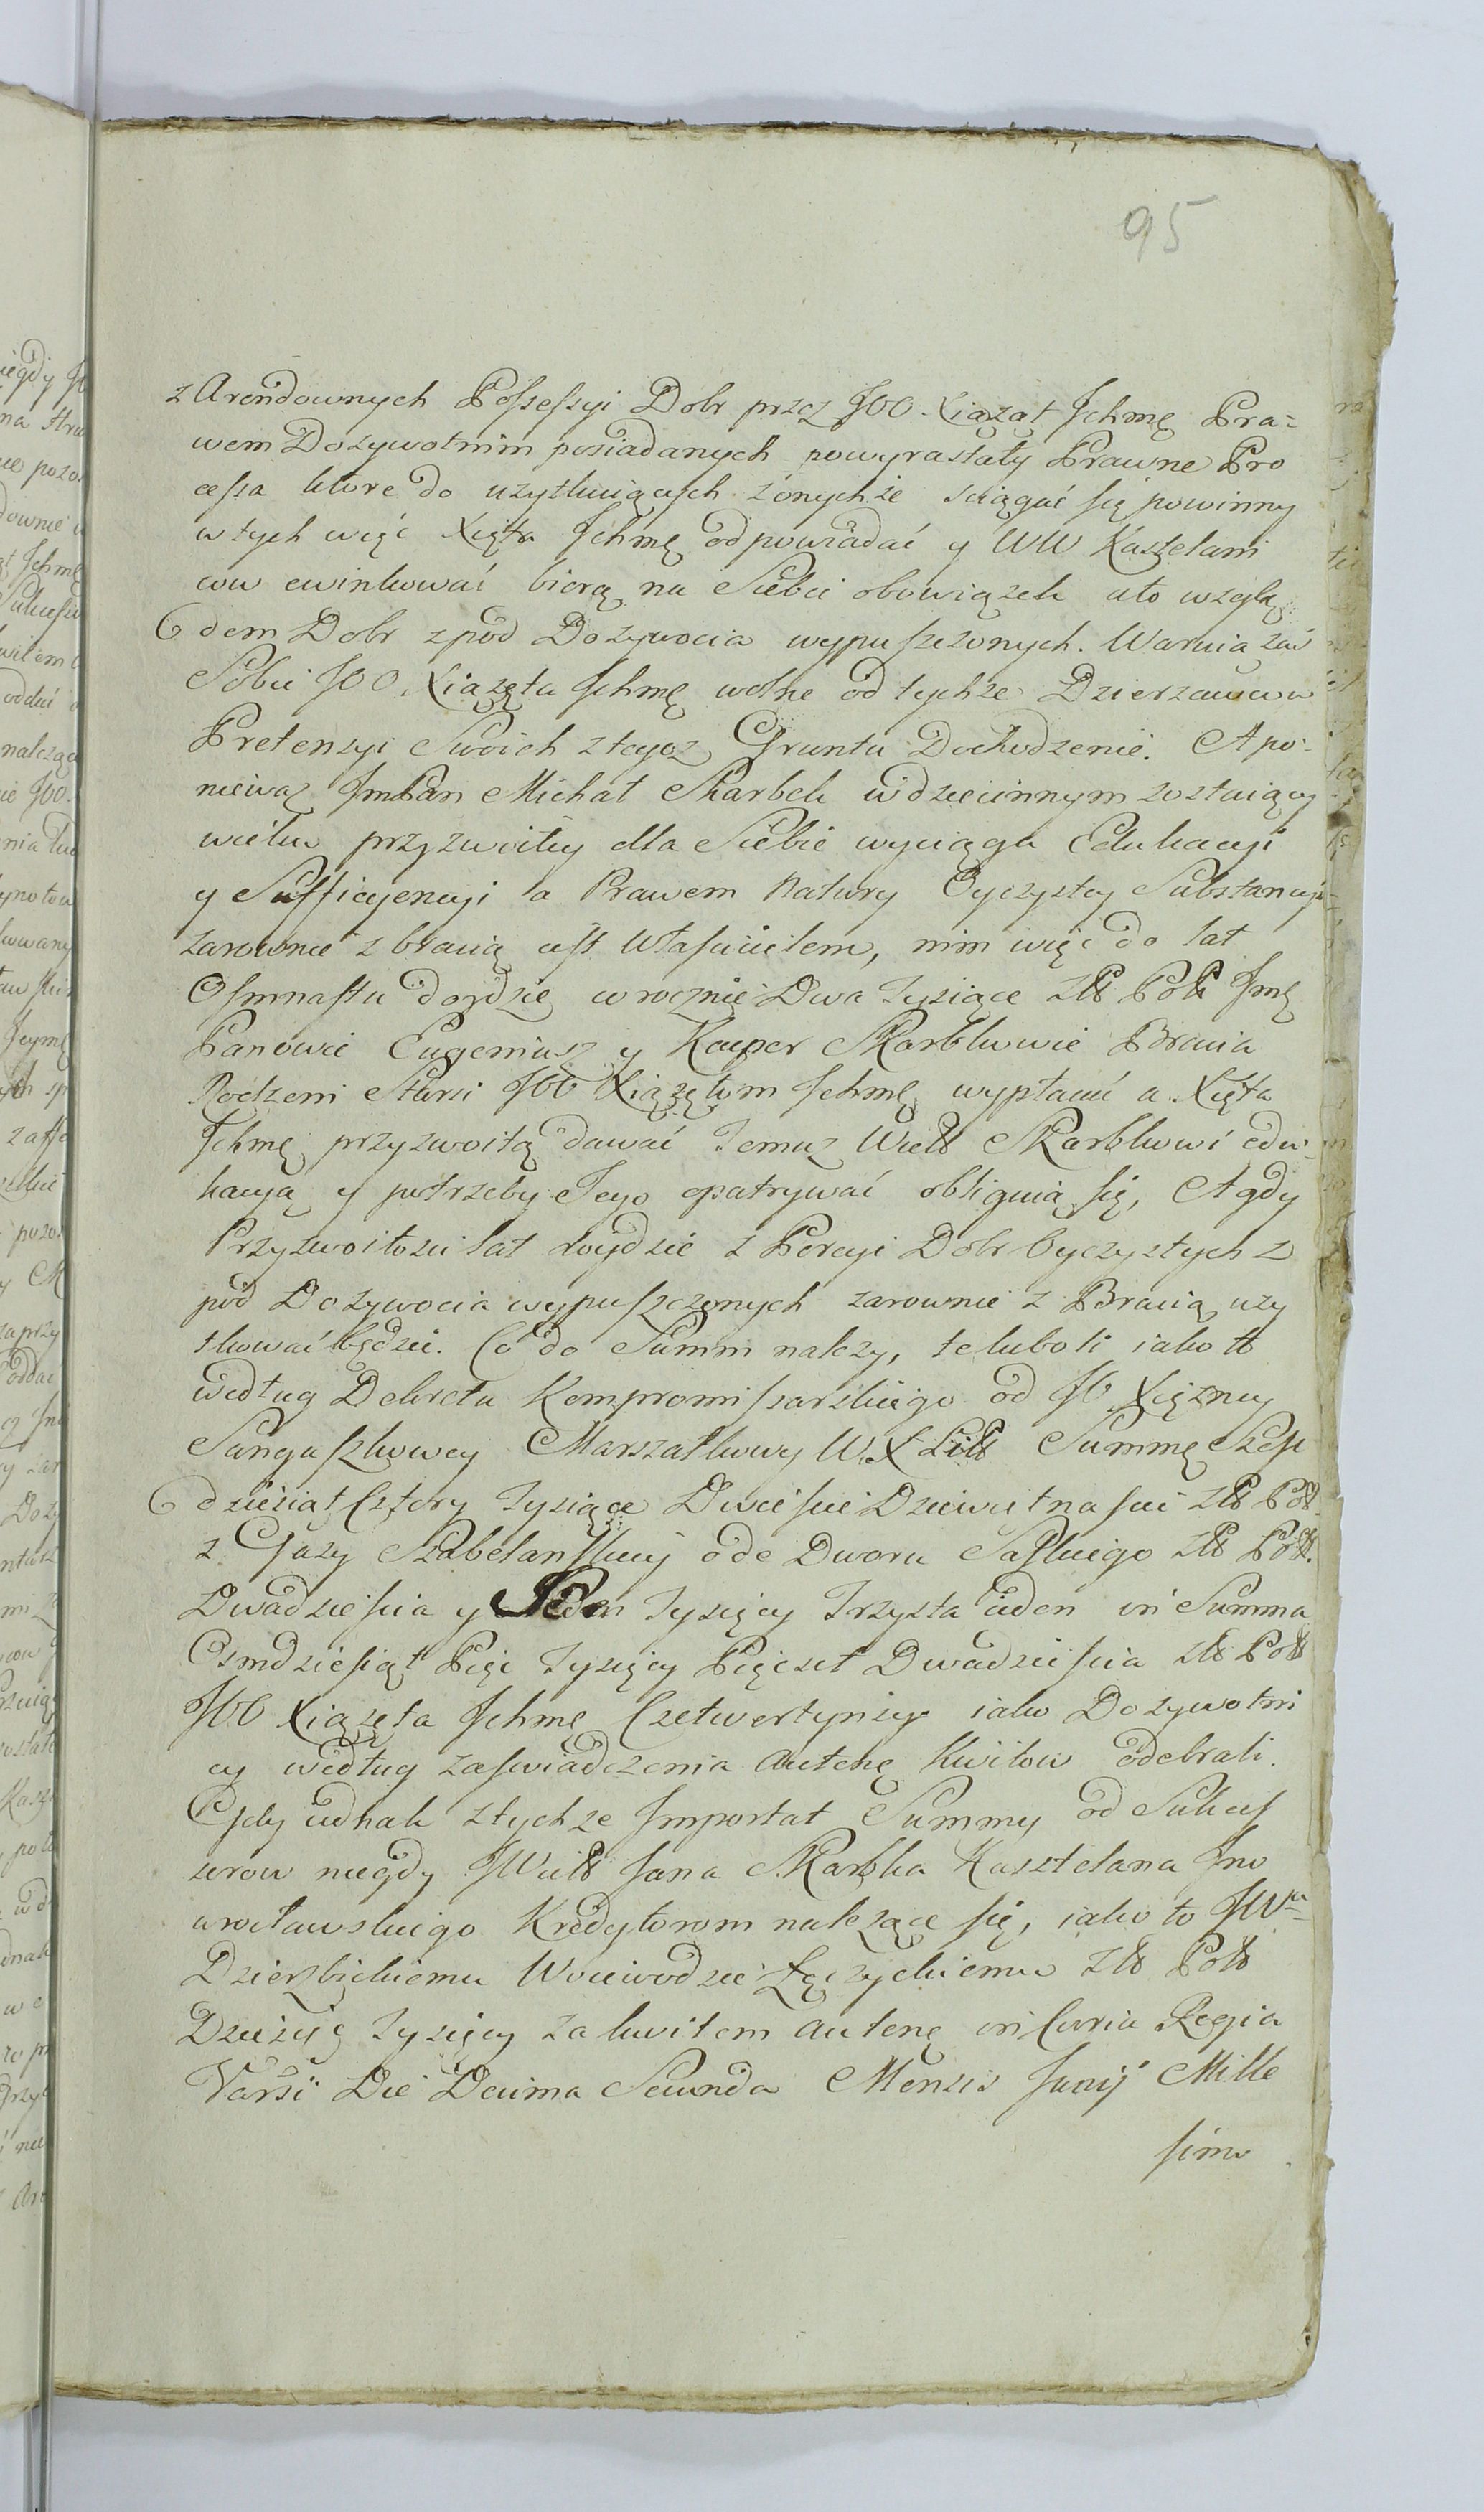 95
z Arendownych Possessyi Dobr przez JOO. Xiążąt Ichmę Pra=
wem Dozywotnim posiadanych powyrastały Prawne Pro
cessa ktore do uzytkuiących zonychże sciągać się powinny
w tych więc Xięta Ichmę odpowiadać y WW Kasztelani
cow ewinkować biorą na Siebie obowiązek a to wzglę
dem Dobr z pod Dozywocia wypuszczonych. Waruią zaś
Sobie JOO. Xiążęta Ichmę wolne od tychze Dzierzawcow
Pretensyi Swoich z tegoz Gruntu Dochodzenie. A po-
niewaz ImPan Michał Skarbek w dziecinnym zostaiący
wieku przyzwoitey dla Siebie wyciąga Edukacyi
y Sufficyencyi a Prawem Natury Oyczystey Substancyi
zarowno z bracią iest Własicielem, nim więc do lat
Osmnastu doydzie corocznie Dwa Tysiące Złł Poll Imę
Panowie Eugeniusz y Kacper Skarbkowie Bracia
Rodzeni Starsi JOO Xiążętom Ichmę wypłacać a Xięta
Ichmę przyzwoitą dawać Temuz Wiell Skarbkowi edu-
kacyą y potrzeby Jego opatrywać obliguią się, A gdy
Przyzwoitości lat doydzie z Porcyi Dobr Oyczystych z
pod Dozywocia wypuszczonych zarownie z Bracią uzy
tkować będzie. Co do Summ nalezy, te luboli iako to
według Dekretu Kompromissarskiego od JO Xięzney
Sanguszkowey Marszałkowy W. X Litt Summę Szesc
dziesiąt Cztery Tysiące Dwiescie Dziewiętnascie Złł Poll
z Gazy Szabelanskiey ode Dworu Saskiego Złł Poll.
Dwadziescia y Jeden Tysięcy Trzysta ieden in Summa
Osmdziesiąt Pięc Tysięcy Pięcset Dwadziescia Złł Poll
JOO Xiążęta Ichmę Czetwertynscy iako Dozywotni
cy według zaswiadczenia Autenę Kwitow odebrali.
Gdy iednak z tychze Importat Summy od Sukces
sorow niegdy JWiell Jana Skarbka Kasztelana Ino
wrocławskiego Kredytorom nalezące się, iako to JWu
Dzierzbickiemu Woiewodzie Łęczyckiemu Złł Poll
Dziesięc Tysięcy za kwitem autenę in Curia Regia
Varsi Die Decima Secunda Mensis Junij Mille
simo